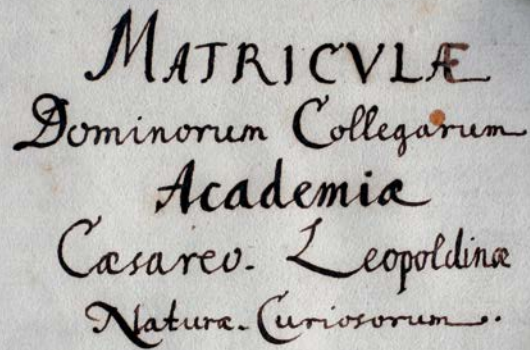 MATRICVLÆ
Dominorum Collegarum
Academiæ
Cæsareo- Leopoldinæ
Naturæ-Curiosorum.